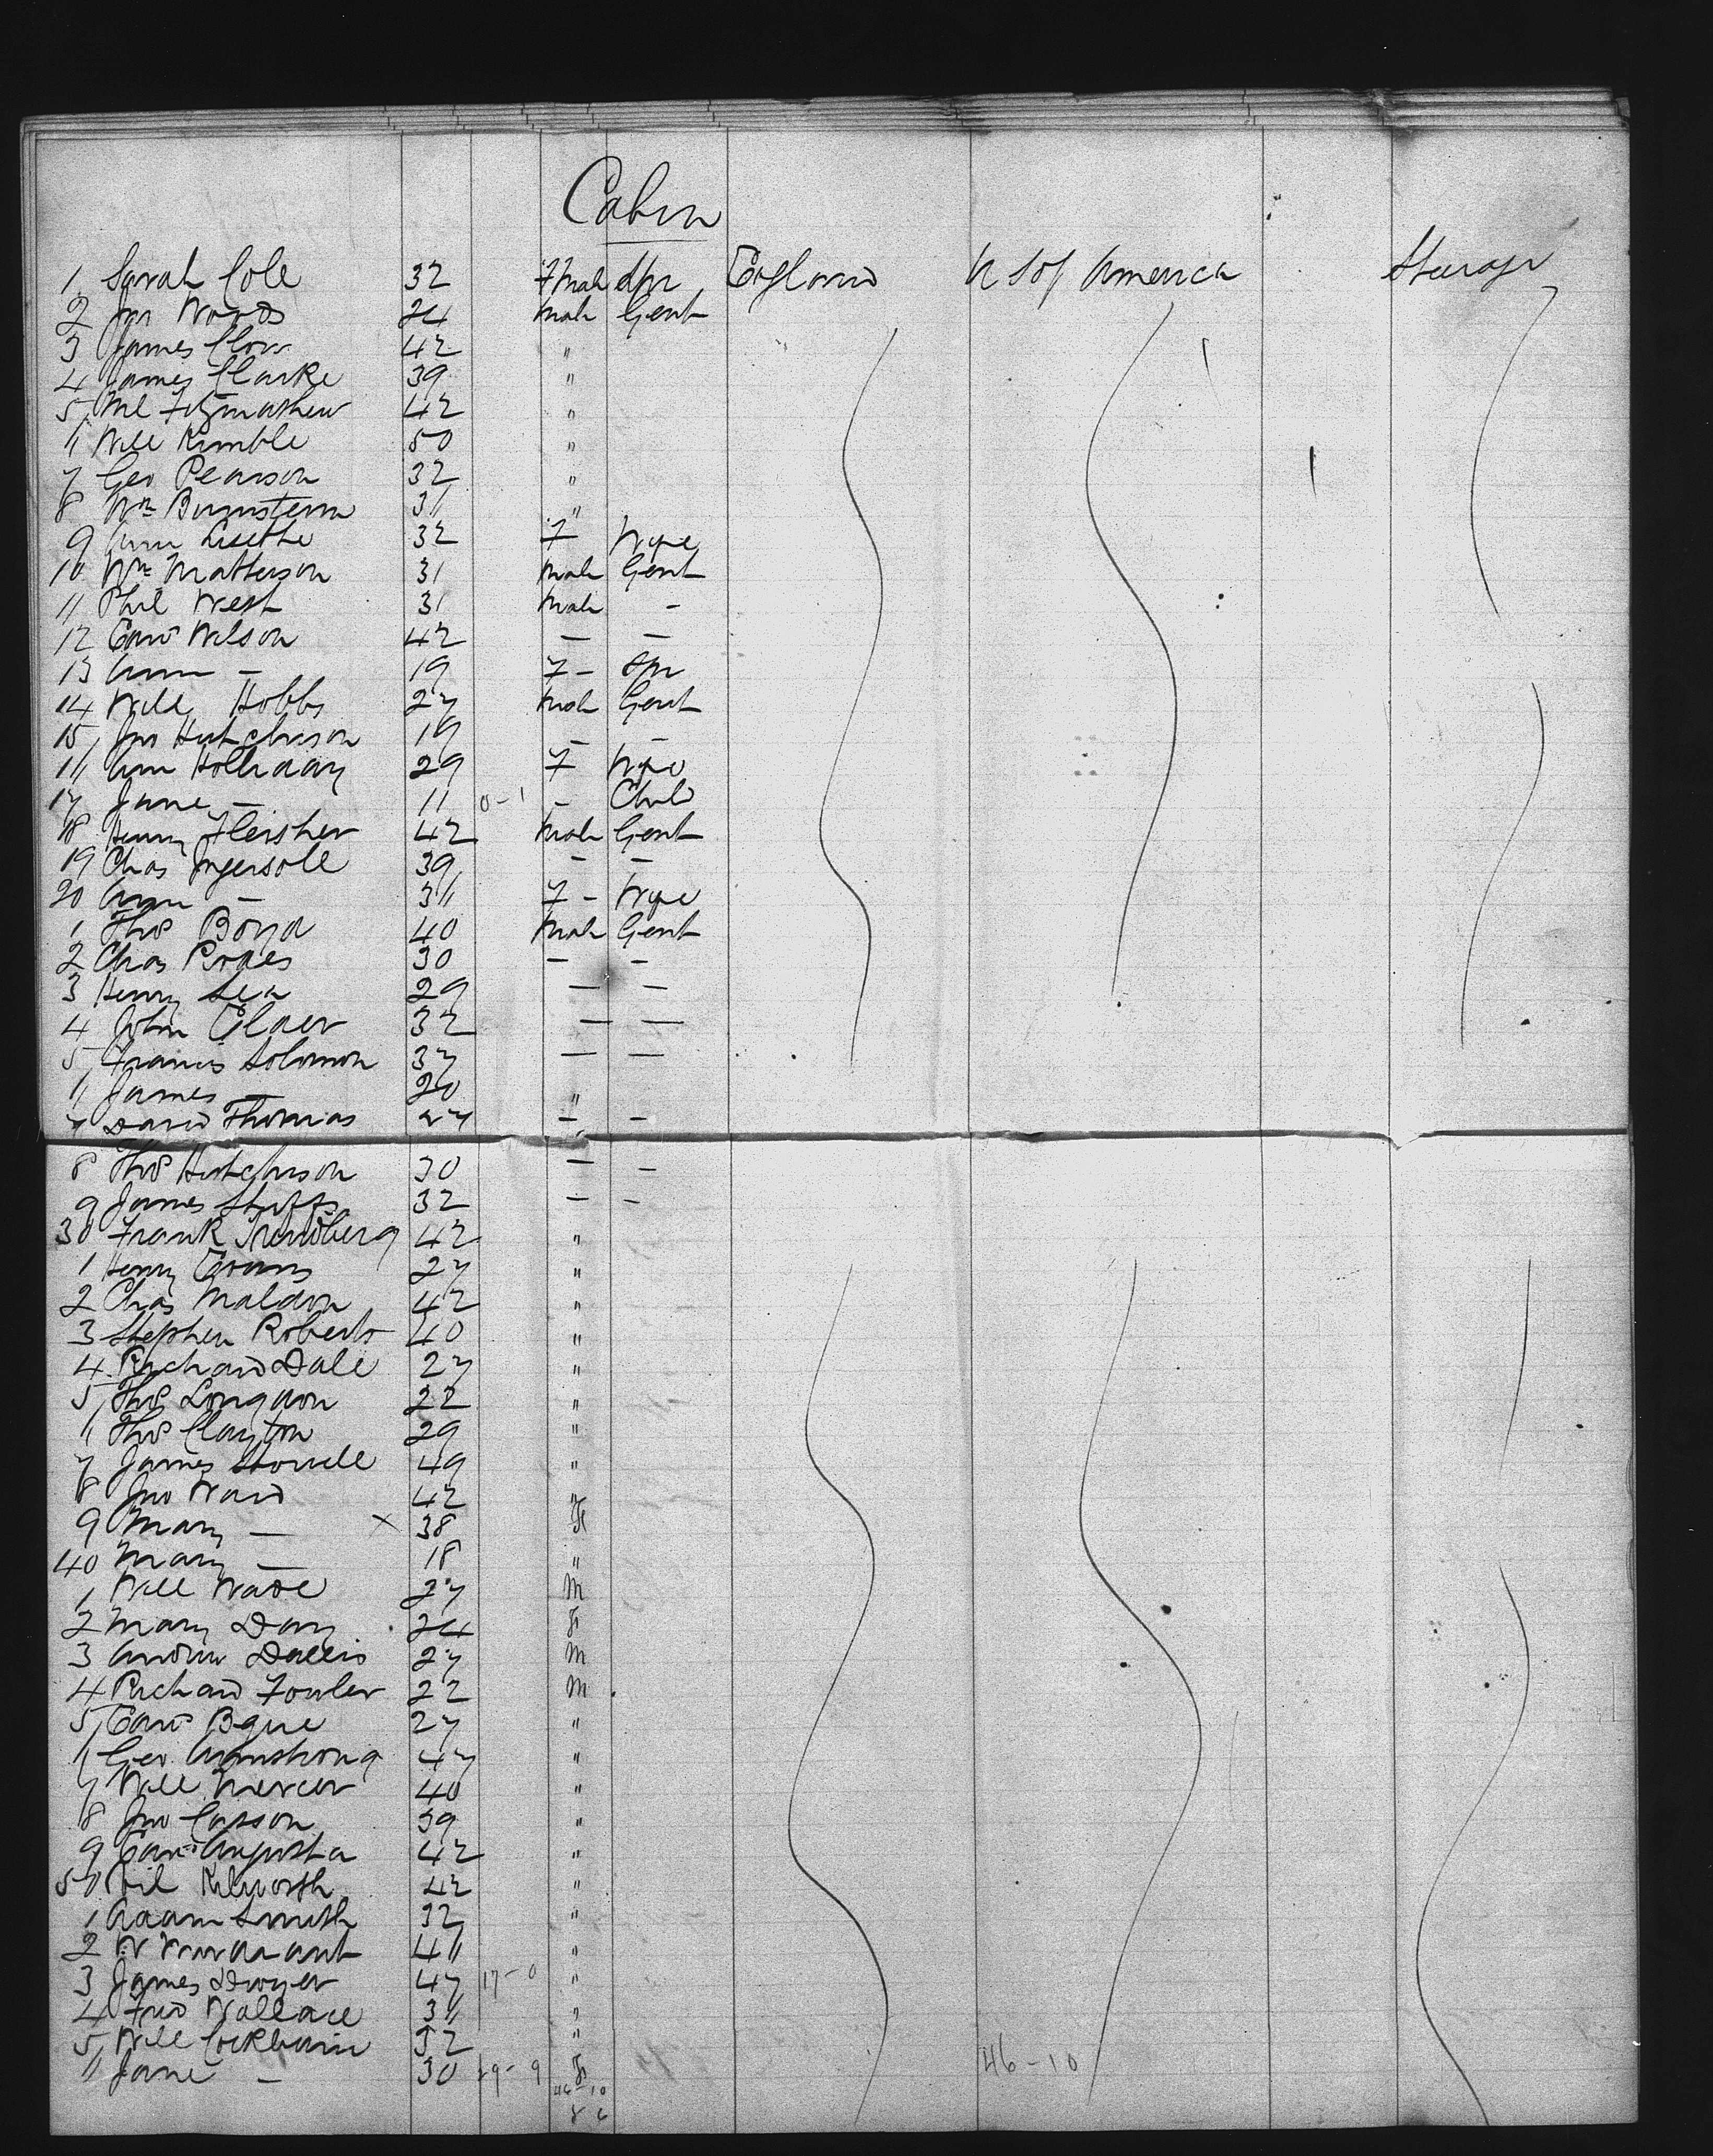 Cabin
1 Sarah Cole 32 Fmale Spr England U S of America Steerage
2 Jno Woods 24 Male Gent
3 James Clow 42 "
4 James Clarke 39 "
5 Ml 42 "
6 Will Kimble 50 "
7 Geo Pearson 32 "
8 Wm 36 "
9 Ann 32 F Wife
10 Wm Matterson 31 Male Gent
11 Phil West 31 Male -
12 Edwd Wilson 42 — —
13 Ann — 19 F - Spr
14 Will Hobbs 27 Male Gent
15 Jno Hutchinson 19 - -
16 Ann Holliday 29 F Wife
17 Jane — 11 0-1 - Child
18 Henry Fleisher 42 Male Gent
19 Chas Ingersole 39 - -
20 Ann — 36 F - Wife
1 Thos Boyd 40 Male Gent
2 Chas 30 — -
3 Henry Lea 29 — —
4 John Elder 32 — —
5 Francis Solomon 37 — —
6 James — 20 "
7 David Thomas 27 - -
8 Thos Hutchinson 30 — -
9 James 32 - -
30 Frank 42 "
1 Henry Evans 27 "
2 Chas Maldon 42 "
3 Stephen Roberts 40 "
4 Richard Dale 27 "
5 Thos Longdon 22 "
6 Thos Clayton 29 "
7 James 49 "
8 Jno Ward 42 "
9 Mary — x 38 F
40 Mary — 18 "
1 Will Wade 27 M
2 Mary Day 24 F
3 Andrew Dallis 27 M
4 Richard Fowler 22 M
5 Edwd 27 "
6 Geo Armstrong 47 "
7 Will Mercer 40 "
8 Jno Casson 39 "
9 Edwd Augusta 42 "
50 Kilworth 42 "
1 Adam Smith 32 "
2 W 46 "
3 James Dwyer 47 17-0 "
4 Fred Wallace 36 "
5 Will Cockburn 52 "
6 Jane — 30 29-9 F 46-10
46 10
56